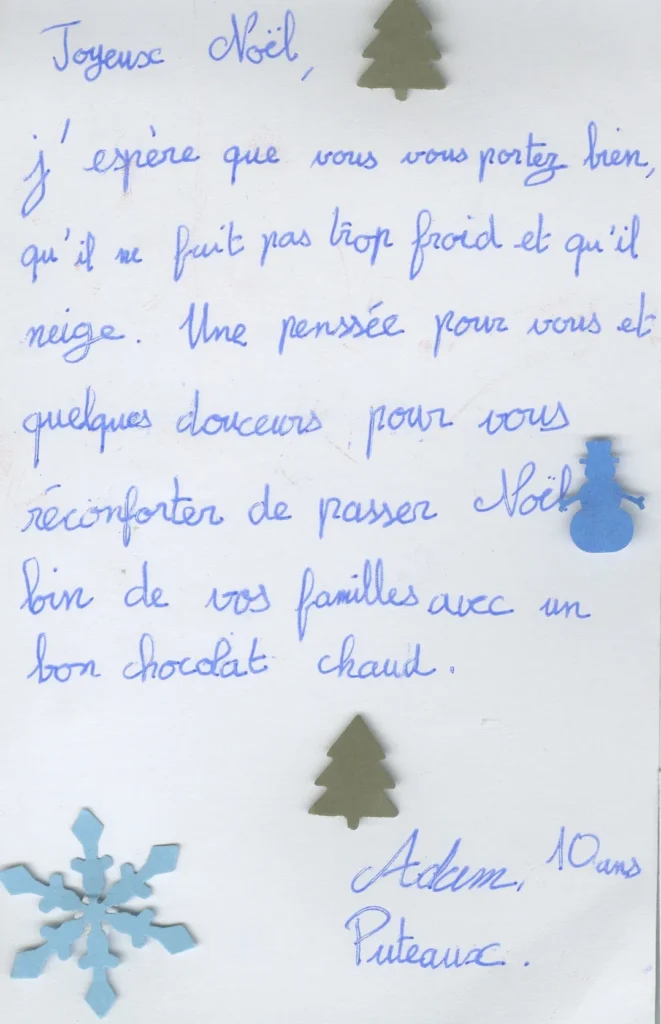 Joyeux Noël,
j'espère que vous vous portez bien,
qu'il ne fait pas trop froid et qu'il
neige. Une penssée pour vous et
quelques douceurs pour vous
réconforter de passer Noël
loin de vos familles avec un
bon chocolat chaud.
Adam, 10 ans
Puteaux.